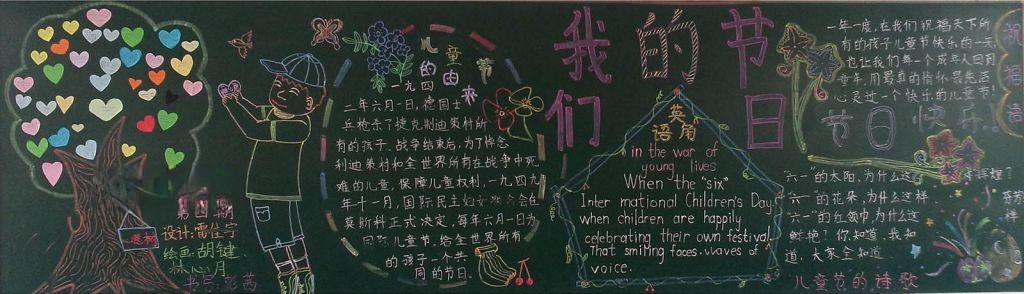 第四期
设计:雷佳宁
绘画:胡键
林心月
心愿树
儿童节
的由来
一九四
二年六月一日,德国士
兵枪杀了捷克利迪策村所
有的孩子,战争结束后,为了悼念
利迪策村和全世界所有在战争中死
难的儿童,保障儿童权利,一九四九
年十一月,国际民主妇女联合会在
莫斯科正式决定,每年六月一日为
国际儿童节,给全世界所有
的孩子一个共
同的节日。
我们的节日
英语角
in the war of
young lives
When the "six"
Inter mational Children's Day
when children are happily
celebrating their own festival
That smiling faces.waves of
voice.
祝福语
一年一度,在我们祝福天下所
有的孩子儿童节快乐的一天,
也让我们每一个成年人回到
童年,用最真的情怀最
心灵过一个快乐的儿童节!
节日快乐
六一的太阳,为什么这
六一的花朵,为什么这样芬芳
六一的红领巾,为什么这样
鲜艳?你知道,我知
道,大家全知道
儿童节的诗歌